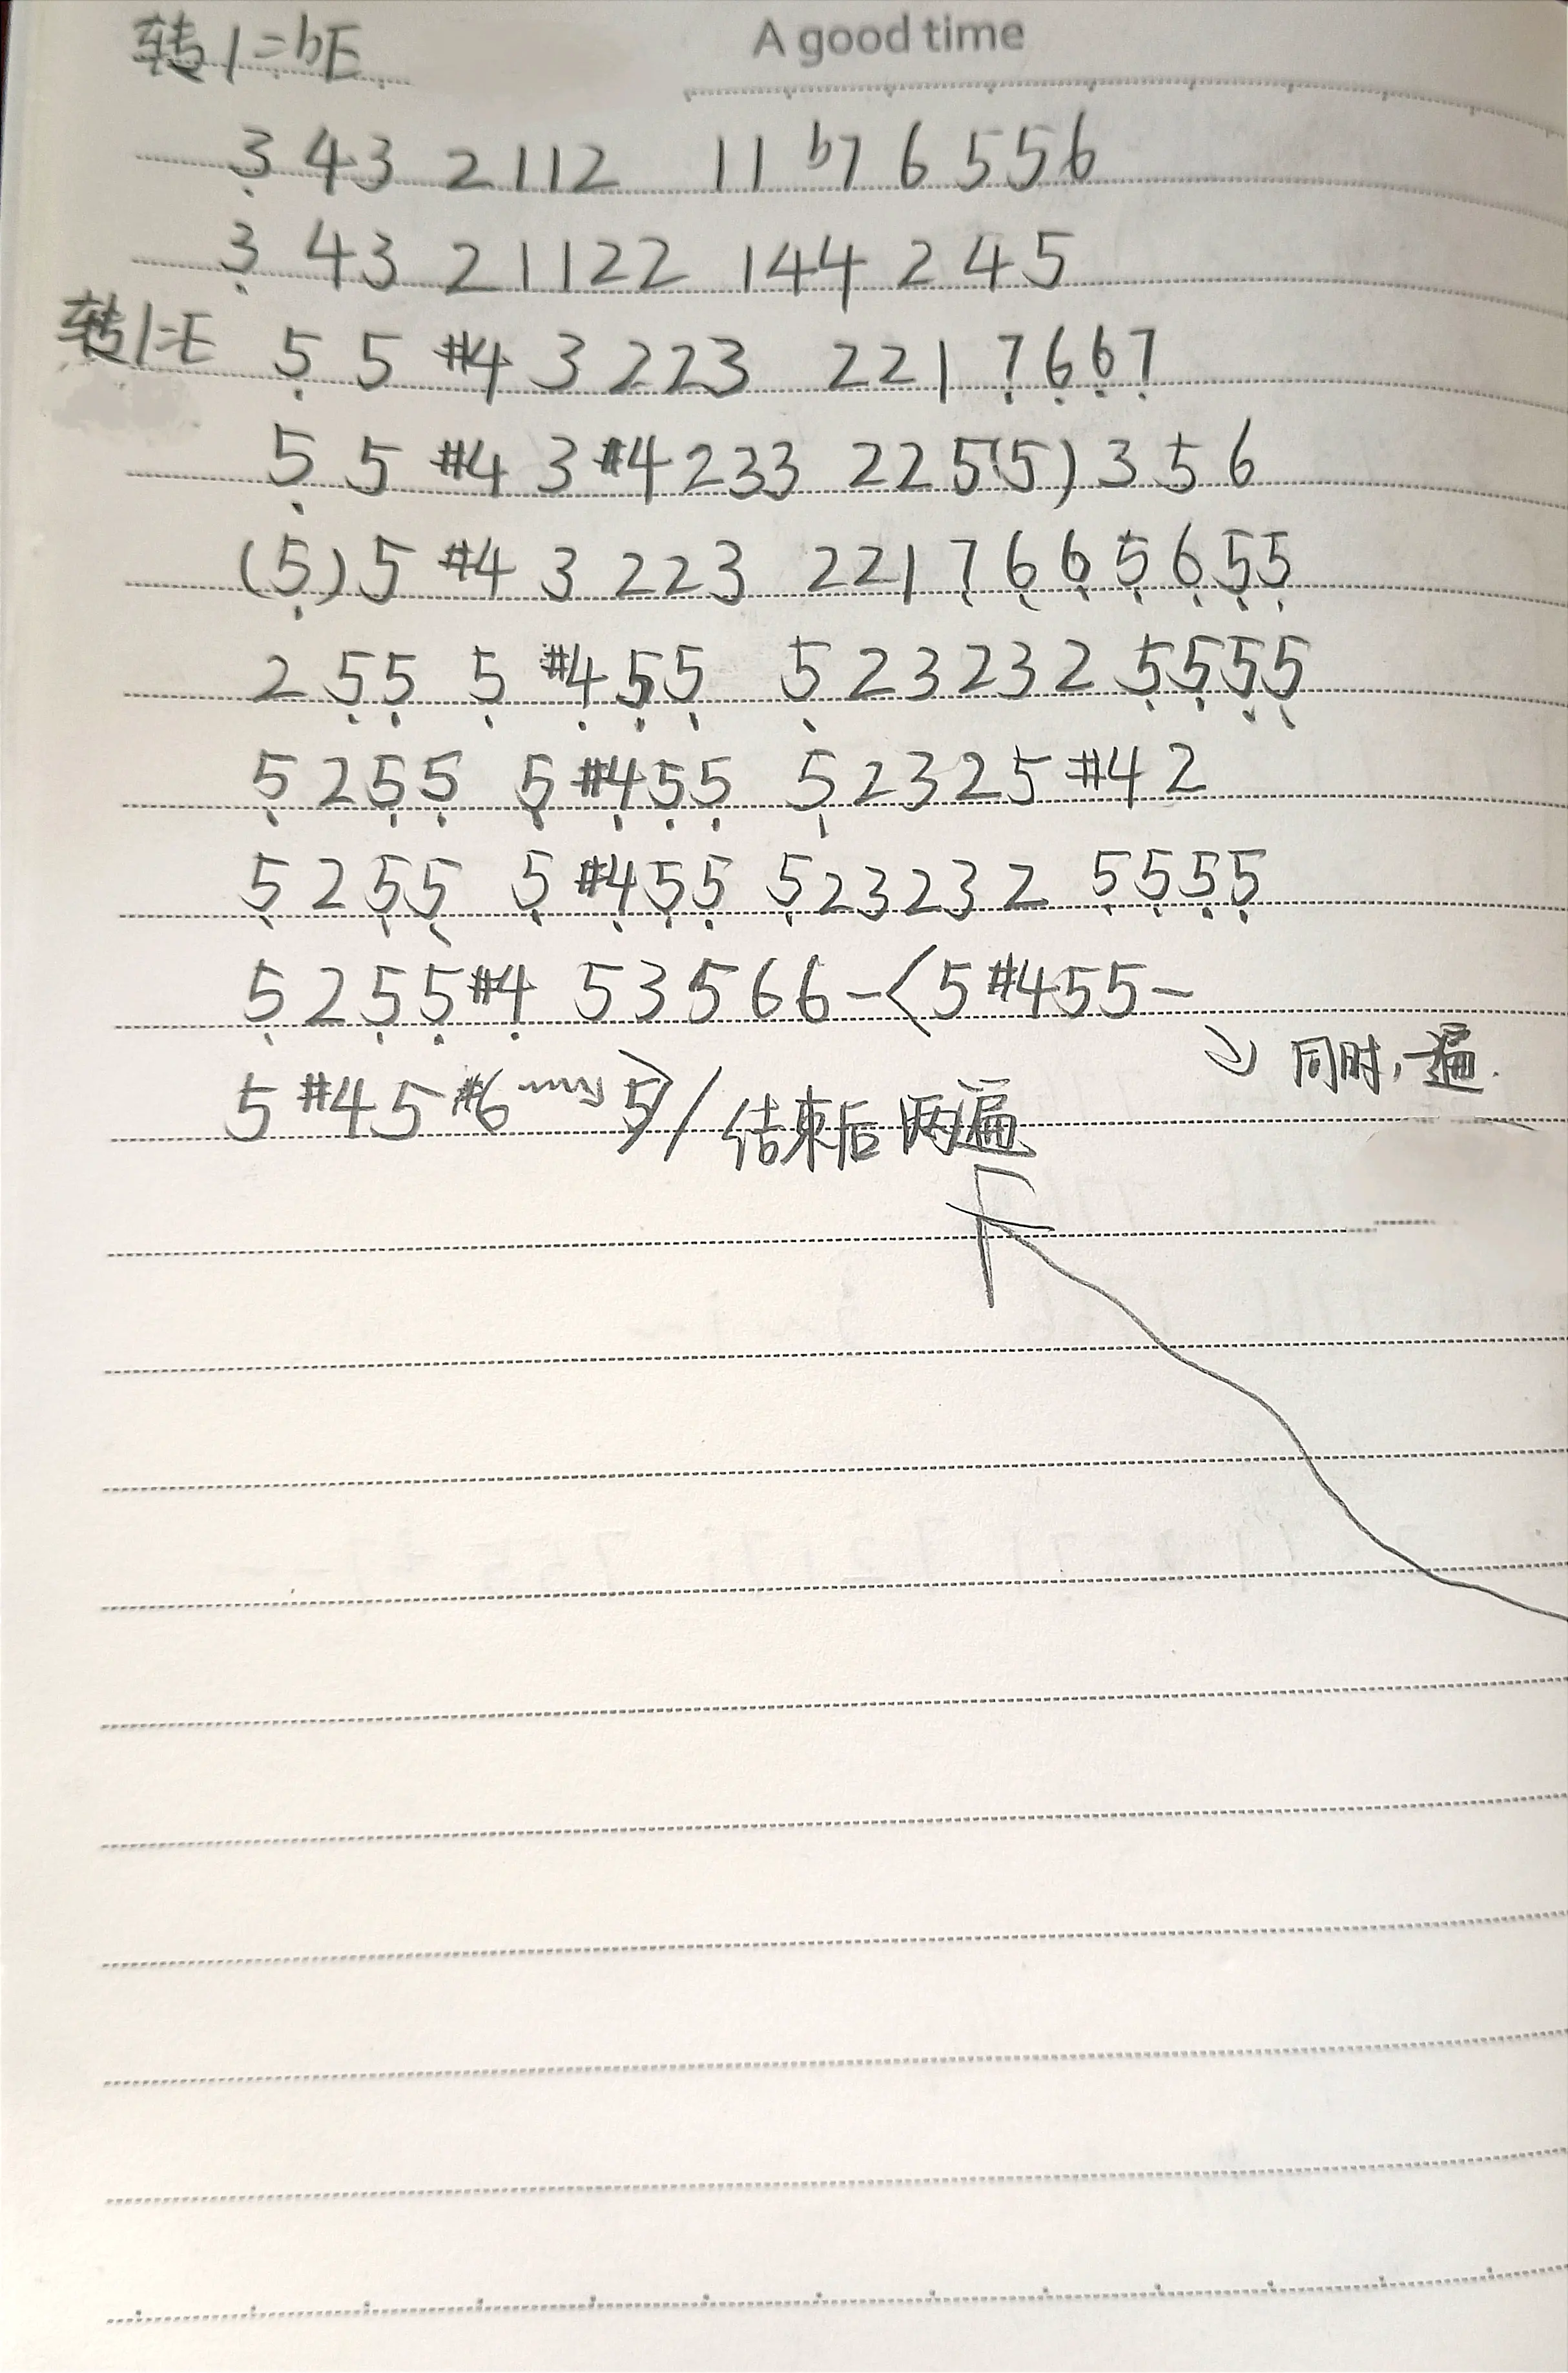 A good time
转1=bE
3̣ 43 2112 11 b7 6 556
3̣ 43 21122 144 2 4 5
转1=E 5̣ 5 #4 3 223 221 7̣ 6̣ 6̣ 7̣
5̣ 5 #4 3 #4 233 225(5) 3 5 6
(5̣) 5 #4 3 223 221 7̣ 6̣ 6̣ 5̣ 6̣ 5̣ 5̣
2 5̣ 5̣ 5̣ #4̣ 5̣ 5̣ 5̣ 2 3 2 3 2 5̣ 5̣ 5̣ 5̣
5̣ 2 5̣ 5̣ 5̣ #4̣ 5̣ 5̣ 5̣ 2 3 2 5 #4 2
5̣ 2 5̣ 5̣ 5̣ #4̣ 5̣ 5̣ 5̣ 2 3 2 3 2 5̣ 5̣ 5̣ 5̣
5̣ 2 5̣ 5̣ #4̣ 5 3 5 6 6 - < 5 #4 5 5 -
同时,一遍.
5 #4 5 #6 5 > / 结束后两遍